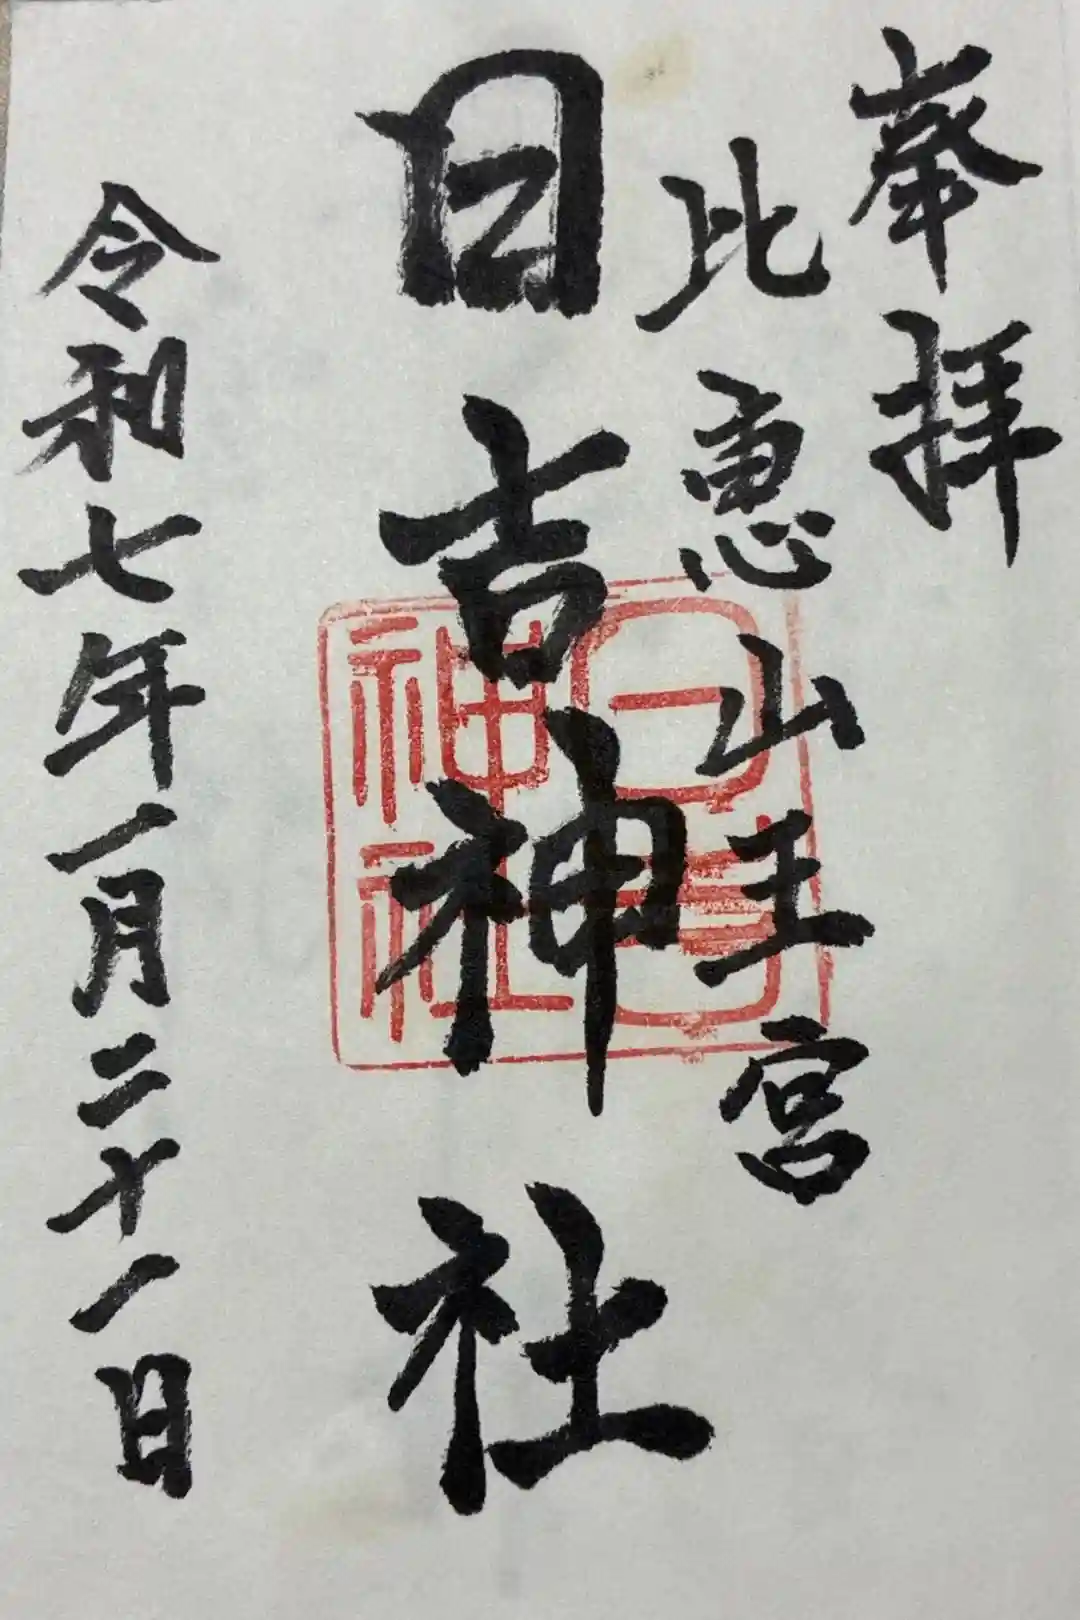 奉拝
比恵山王宮
日吉神社
日吉神社
令和七年一月二十一日